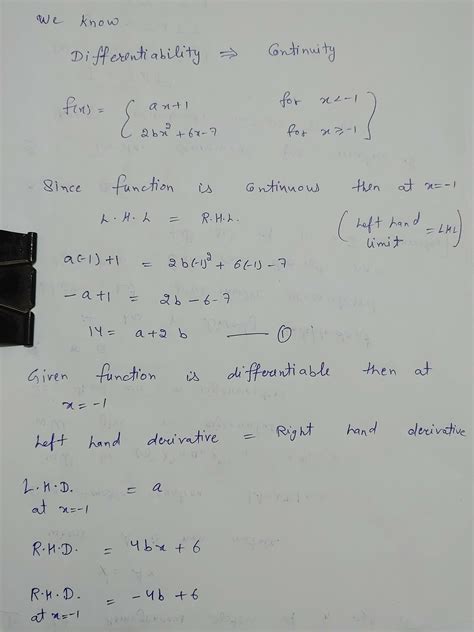 We know
Differentiability ⇒ Continuity
f(x) = { ax+1 for x<-1
2bx²+6x-7 for x≥-1 }
Since function is continuous then at x=-1
L.H.L = R.H.L. (Left hand limit = LHL)
a(-1)+1 = 2b(-1)²+6(-1)-7
-a+1 = 2b-6-7
14 = a+2b —— ①
Given function is differentiable then at
x=-1
Left hand derivative = Right hand derivative
L.H.D. = a
at x=-1
R.H.D. = 4bx+6
R.H.D. = -4b+6
at x=-1